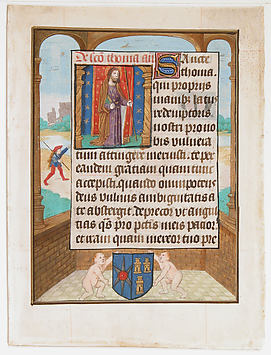 De sco thoma an
Sancte
thoma.
qui proprijs
manib latus
redemptoris
nostri pro no
bis vulnera
tum attingere meruisti. te per
eandem gratiam quam tunc
accepisti. quando omnipotens
deus vulnus ambiguitatis a
te abstergit. deprecor ut angu
stias qs pro pctis meis pacior.
et iram quam mereor tuo pre